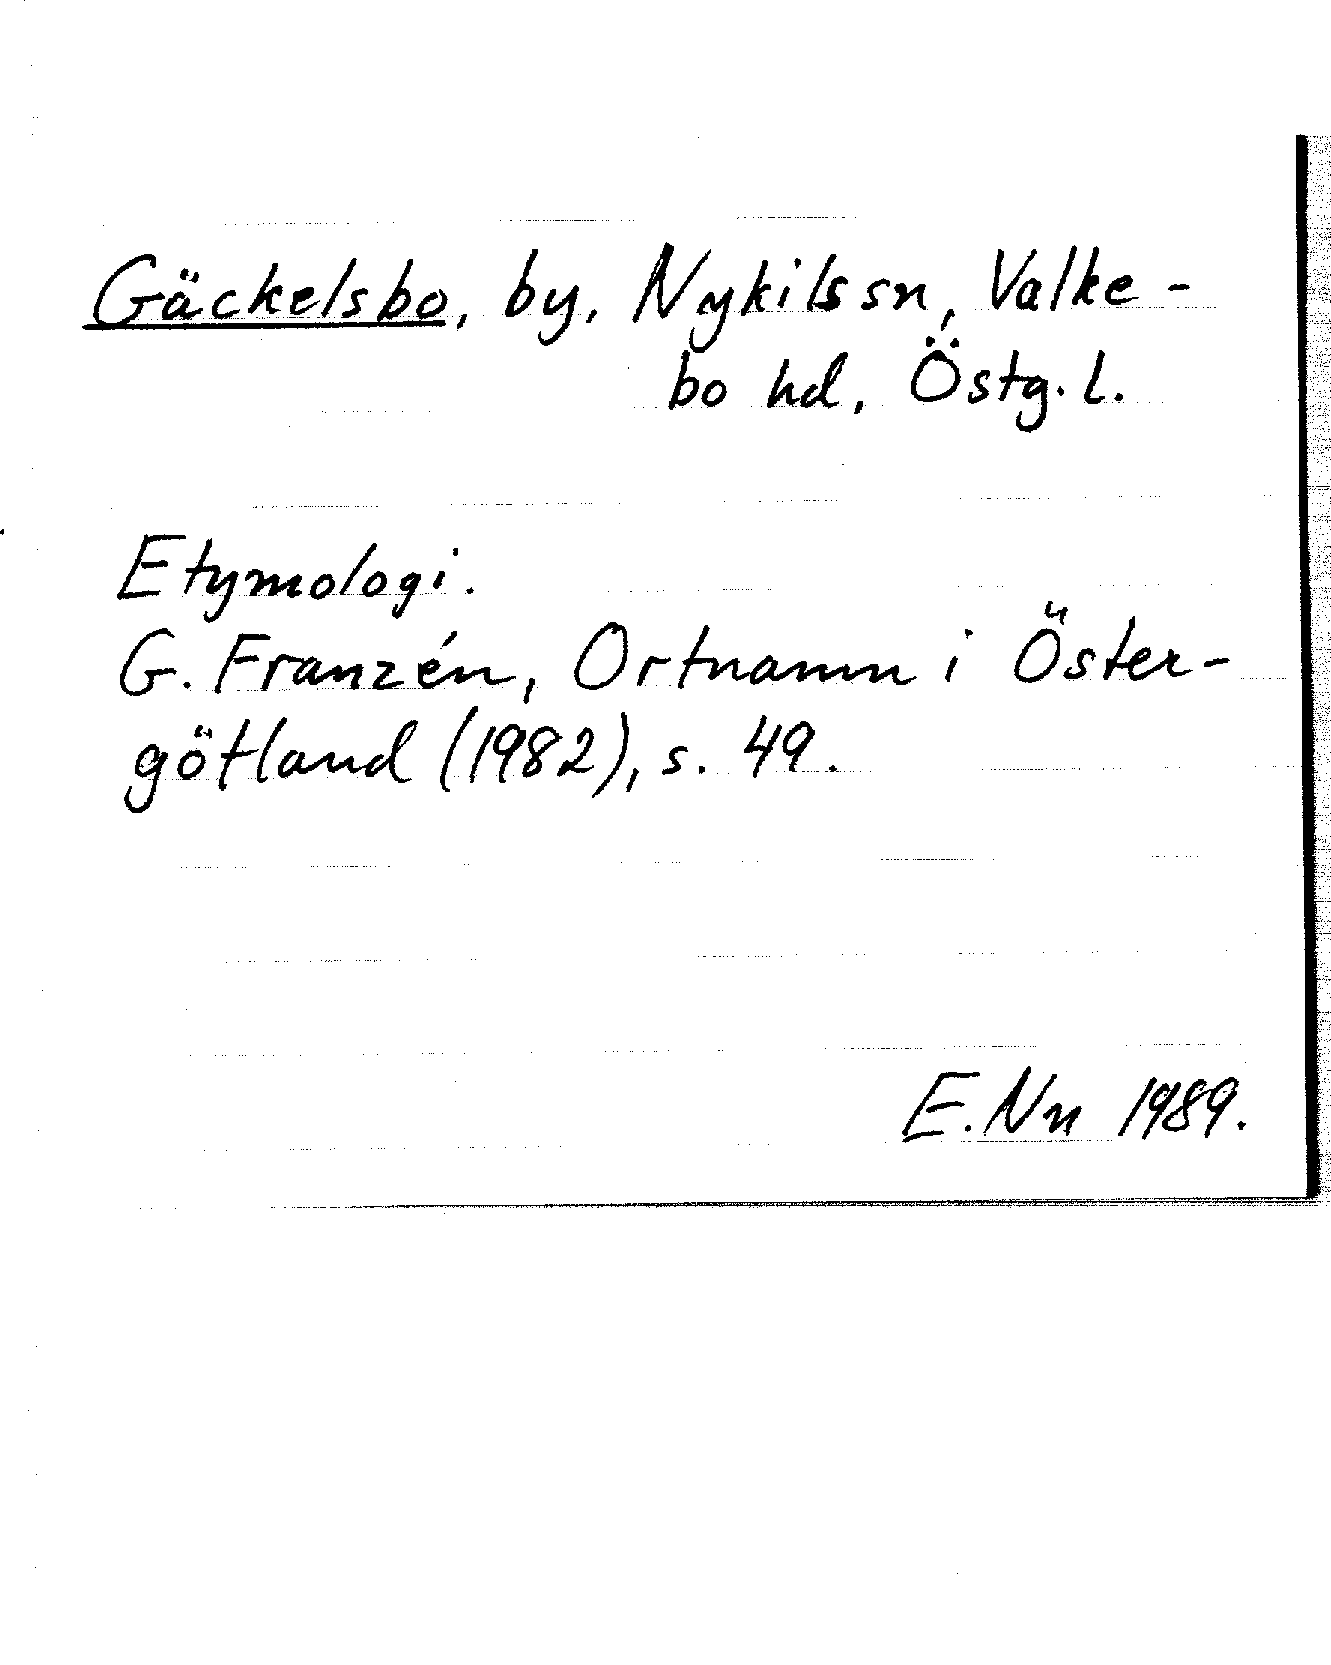 Gäckelsbo, by, Nykils sn, Valke-
bo hd, Östg. l.
Etymologi.
G. Franzén, Ortnamn i Öster-
götland (1982), s. 49.
E. Nn 1989.